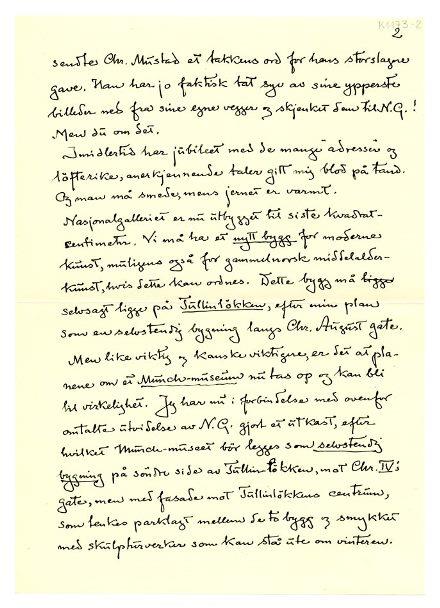 K1173-2
2
sendte Chr. Mustad et takkens ord for hans storslagne
gave. Han har jo faktisk tat syv av sine ypperste
billeder ned fra sine egne vegger og skjenket dem til N.G.!
Men du om det.
Imidlertid har jubileet med de mange adresser og
löfterike, anerkjennende taler gitt mig blod på tand.
Og man må smede, mens jernet er varmt.
Nasjonalgalleriet er nu utbygget til siste kvadrat-
centimeter. Vi må ha et nytt bygg for moderne
kunst, muligens også for gammelnorsk middelalder-
kunst, hvis dette kan ordnes. Dette bygg må ligge
selvsagt ligge på Tullinlökken, efter min plan
som en selvstendig bygning langs Chr. August gate.
Men like viktig og kanske viktigere, er det at pla-
nene om et Munch-museum nu tas op og kan bli
til virkelighet. Jeg har nu i forbindelse med ovenfor
omtalte utvidelse av N.G. gjort et utkast, efter
hvilket Munch-museet bör legges som selvstendig
bygning på söndre side av Tullin-lökken, mot Chr. IV's
gate, men med fasade mot Tullinlökkens centrum,
som tenkes parklagt mellem de to bygg og smykket
med skulpturverker som kan stå ute om vinteren.